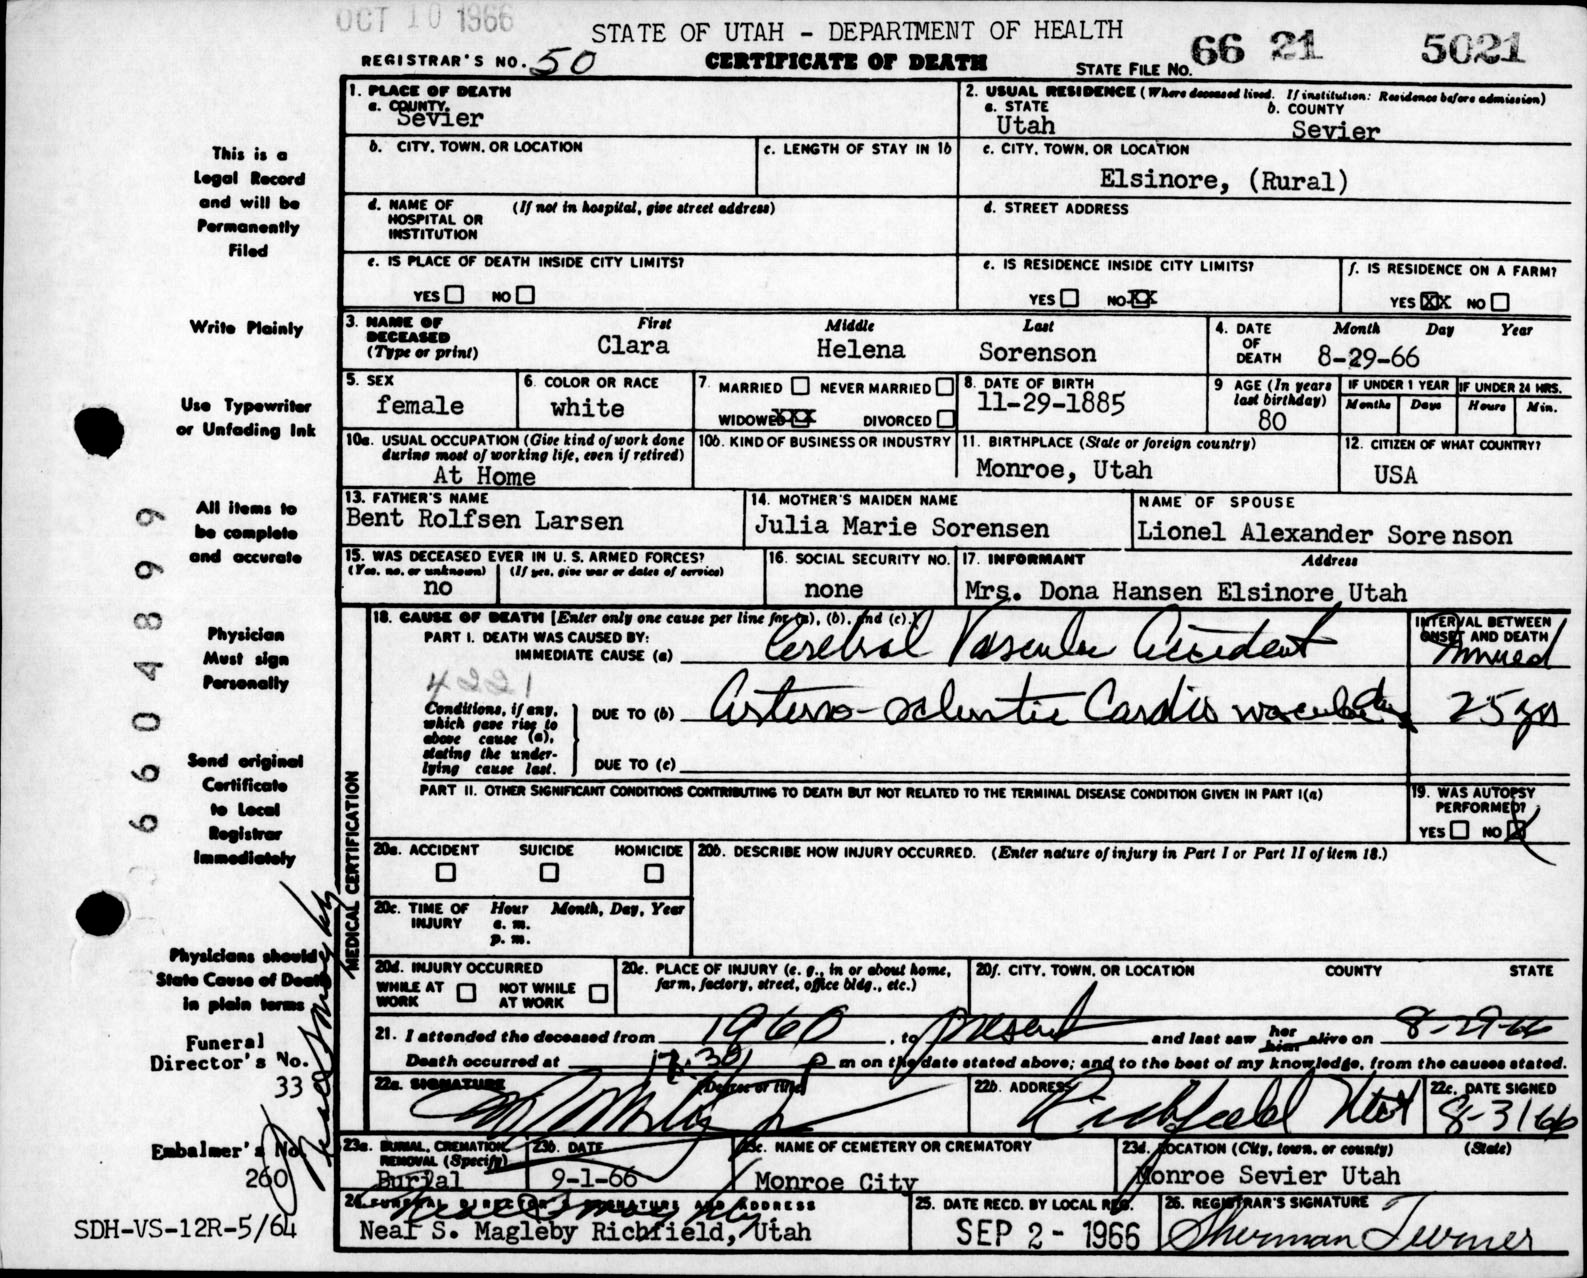 OCT 10 1966
STATE OF UTAH - DEPARTMENT OF HEALTH
REGISTRAR'S NO. 50
CERTIFICATE OF DEATH
STATE FILE NO. 66 21 5021
This is a
Legal Record
and will be
Permanently
Filed
Write Plainly
Use Typewriter
or Unfading Ink
All items to
be complete
and accurate
Physician
Must sign
Personally
Send original
Certificate
to Local
Registrar
Immediately
Physicians should
State Cause of Death
in plain terms
Funeral
Director's No.
33
Embalmer's No.
260
SDH-VS-12R-5/64
6604899
1. PLACE OF DEATH
a. COUNTY.
Sevier
2. USUAL RESIDENCE (Where deceased lived. If institution: Residence before admission)
a. STATE b. COUNTY
Utah Sevier
b. CITY, TOWN, OR LOCATION
c. LENGTH OF STAY IN 1b
c. CITY, TOWN, OR LOCATION
Elsinore, (Rural)
d. NAME OF (If not in hospital, give street address)
HOSPITAL OR
INSTITUTION
d. STREET ADDRESS
e. IS PLACE OF DEATH INSIDE CITY LIMITS?
YES NO
e. IS RESIDENCE INSIDE CITY LIMITS?
YES NO XX
f. IS RESIDENCE ON A FARM?
YES XX NO
3. NAME OF First Middle Last
DECEASED
(Type or print) Clara Helena Sorenson
4. DATE Month Day Year
OF
DEATH 8-29-66
5. SEX
female
6. COLOR OR RACE
white
7. MARRIED NEVER MARRIED
WIDOWED XXX DIVORCED
8. DATE OF BIRTH
11-29-1885
9 AGE (In years
last birthday)
80
IF UNDER 1 YEAR
Months Days
IF UNDER 24 HRS.
Hours Min.
10a. USUAL OCCUPATION (Give kind of work done
during most of working life, even if retired)
At Home
10b. KIND OF BUSINESS OR INDUSTRY
11. BIRTHPLACE (State or foreign country)
Monroe, Utah
12. CITIZEN OF WHAT COUNTRY?
USA
13. FATHER'S NAME
Bent Rolfsen Larsen
14. MOTHER'S MAIDEN NAME
Julia Marie Sorensen
NAME OF SPOUSE
Lionel Alexander Sorenson
15. WAS DECEASED EVER IN U. S. ARMED FORCES?
(Yes, no, or unknown) (If yes, give war or dates of service)
no
16. SOCIAL SECURITY NO.
none
17. INFORMANT Address
Mrs. Dona Hansen Elsinore Utah
MEDICAL CERTIFICATION
18. CAUSE OF DEATH [Enter only one cause per line for (a), (b), and (c).]
PART I. DEATH WAS CAUSED BY:
IMMEDIATE CAUSE (a) Cerebral Vascular Accident
INTERVAL BETWEEN
ONSET AND DEATH
4221
Conditions, if any,
which gave rise to
above cause (a),
stating the under-
lying cause last.
DUE TO (b) Arterio-sclerotic Cardio vascular 25 yrs
DUE TO (c)
PART II. OTHER SIGNIFICANT CONDITIONS CONTRIBUTING TO DEATH BUT NOT RELATED TO THE TERMINAL DISEASE CONDITION GIVEN IN PART I(a)
19. WAS AUTOPSY
PERFORMED?
YES NO X
20a. ACCIDENT SUICIDE HOMICIDE
20b. DESCRIBE HOW INJURY OCCURRED. (Enter nature of injury in Part I or Part II of item 18.)
20c. TIME OF Hour Month, Day, Year
INJURY a. m.
p. m.
20d. INJURY OCCURRED
WHILE AT NOT WHILE
WORK AT WORK
20e. PLACE OF INJURY (e. g., in or about home,
farm, factory, street, office bldg., etc.)
20f. CITY, TOWN, OR LOCATION COUNTY STATE
21. I attended the deceased from 1960, to present and last saw her him alive on 8-29-66
Death occurred at 12:30 p m on the date stated above; and to the best of my knowledge, from the causes stated.
22a. SIGNATURE (Degree or title)
22b. ADDRESS
Richfield Utah
22c. DATE SIGNED
8-31-66
23a. BURIAL, CREMATION,
REMOVAL (Specify)
Burial
23b. DATE
9-1-66
23c. NAME OF CEMETERY OR CREMATORY
Monroe City
23d. LOCATION (City, town, or county) (State)
Monroe Sevier Utah
24. FUNERAL DIRECTOR'S SIGNATURE AND ADDRESS
Neal S. Magleby
Neal S. Magleby Richfield, Utah
25. DATE RECD. BY LOCAL REG.
SEP 2 - 1966
26. REGISTRAR'S SIGNATURE
Sherman Turner